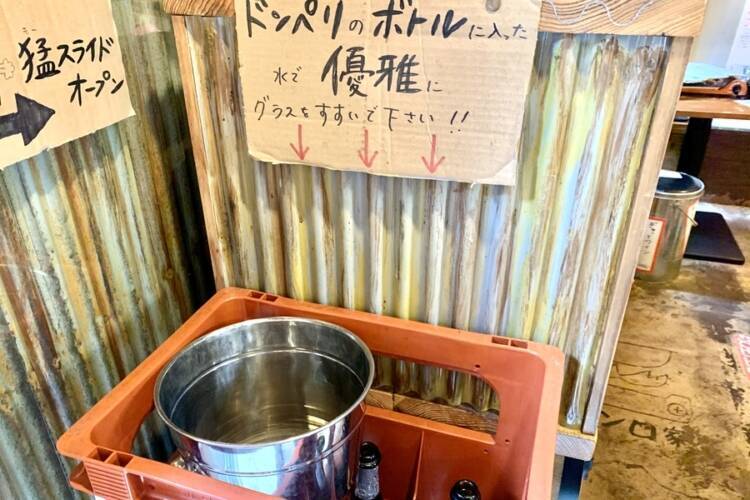 モー
猛スライド
オープン
ドンペリのボトルに入った
水で優雅に
グラスをすすいで下さい!!